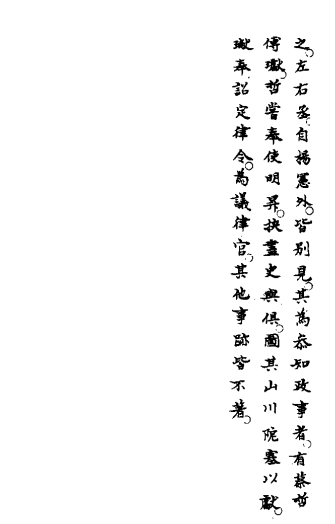 之。左右丞自楊憲外。皆別見。其為叅知政事者。有蔡哲
傅瓛。哲嘗奉使明昇。挾畫史與俱。圖其山川阨塞以獻。
瓛奉詔定律令。為議律官。其他事跡皆不著。